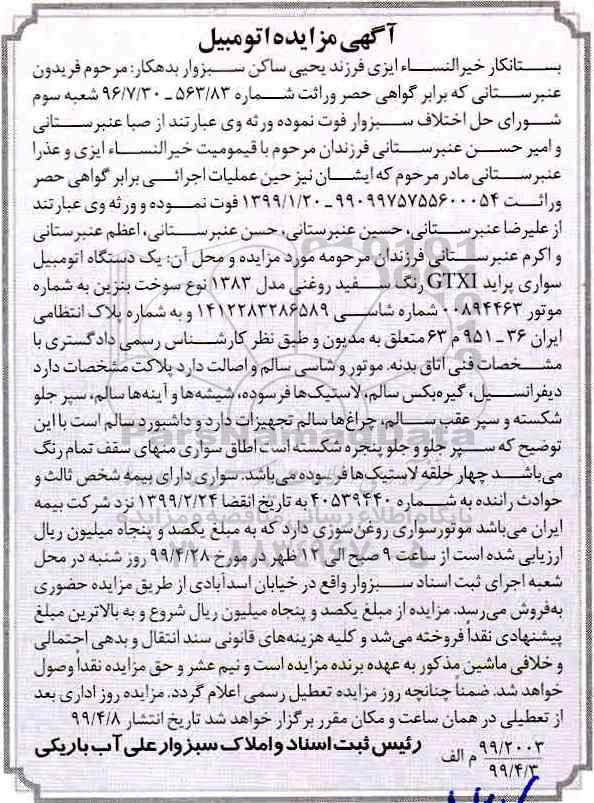 آگهی مزایده اتومبیل
بستانکار خیرالنساء ایزی فرزند یحیی ساکن سبزوار بدهکار: مرحوم فریدون
عنبرستانی که برابر گواهی حصر وراثت شماره ۵۶۳/۸۳ ـ ۹۶/۷/۳۰ شعبه سوم
شورای حل اختلاف سبزوار فوت نموده ورثه وی عبارتند از صبا عنبرستانی
و امیر حسن عنبرستانی فرزندان مرحوم با قیمومیت خیرالنساء ایزی و عذرا
عنبرستانی مادر مرحوم که ایشان نیز حین عملیات اجرائی برابر گواهی حصر
وراثت ۹۹۰۹۹۷۵۷۵۵۶۰۰۰۵۴ ـ ۱۳۹۹/۱/۲۰ فوت نموده و ورثه وی عبارتند
از علیرضا عنبرستانی، حسین عنبرستانی، حسن عنبرستانی، اعظم عنبرستانی
و اکرم عنبرستانی فرزندان مرحومه مورد مزایده و محل آن: یک دستگاه اتومبیل
سواری پراید GTXI رنگ سفید روغنی مدل ۱۳۸۳ نوع سوخت بنزین به شماره
موتور ۰۰۸۹۴۴۶۳ شماره شاسی ۱۴۱۲۲۸۳۲۸۶۵۸۹ و به شماره پلاک انتظامی
ایران ۳۶ ـ ۹۵۱ م ۶۳ متعلق به مدیون و طبق نظر کارشناس رسمی دادگستری با
مشخصات فنی اتاق بدنه. موتور و شاسی سالم و اصالت دارد پلاکت مشخصات دارد
دیفرانسیل، گیره‌بکس سالم، لاستیک‌ها فرسوده، شیشه‌ها و آینه‌ها سالم، سپر جلو
شکسته و سپر عقب سالم، چراغ‌ها سالم تجهیزات دارد و داشبورد سالم است با این
توضیح که سپر جلو و جلو پنجره شکسته است اطاق سواری منهای سقف تمام رنگ
می‌باشد چهار حلقه لاستیک‌ها فرسوده می‌باشد. سواری دارای بیمه شخص ثالث و
حوادث راننده به شماره ۴۰۵۳۹۴۴۰ به تاریخ انقضا ۱۳۹۹/۲/۲۴ نزد شرکت بیمه
ایران می‌باشد موتورسواری روغن‌سوزی دارد که به مبلغ یکصد و پنجاه میلیون ریال
ارزیابی شده است از ساعت ۹ صبح الی ۱۲ ظهر در مورخ ۹۹/۴/۲۸ روز شنبه در محل
شعبه اجرای ثبت اسناد سبزوار واقع در خیابان اسدآبادی از طریق مزایده حضوری
به‌فروش می‌رسد. مزایده از مبلغ یکصد و پنجاه میلیون ریال شروع و به بالاترین مبلغ
پیشنهادی نقداً فروخته می‌شد و کلیه هزینه‌های قانونی سند انتقال و بدهی احتمالی
و خلافی ماشین مذکور به عهده برنده مزایده است و نیم عشر و حق مزایده نقداً وصول
خواهد شد. ضمناً چنانچه روز مزایده تعطیل رسمی اعلام گردد. مزایده روز اداری بعد
از تعطیلی در همان ساعت و مکان مقرر برگزار خواهد شد تاریخ انتشار ۹۹/۴/۸
رئیس ثبت اسناد و املاک سبزوار علی آب باریکی
۹۹/۲۰۰۳ م الف
۹۹/۴/۳
ParsNamadData